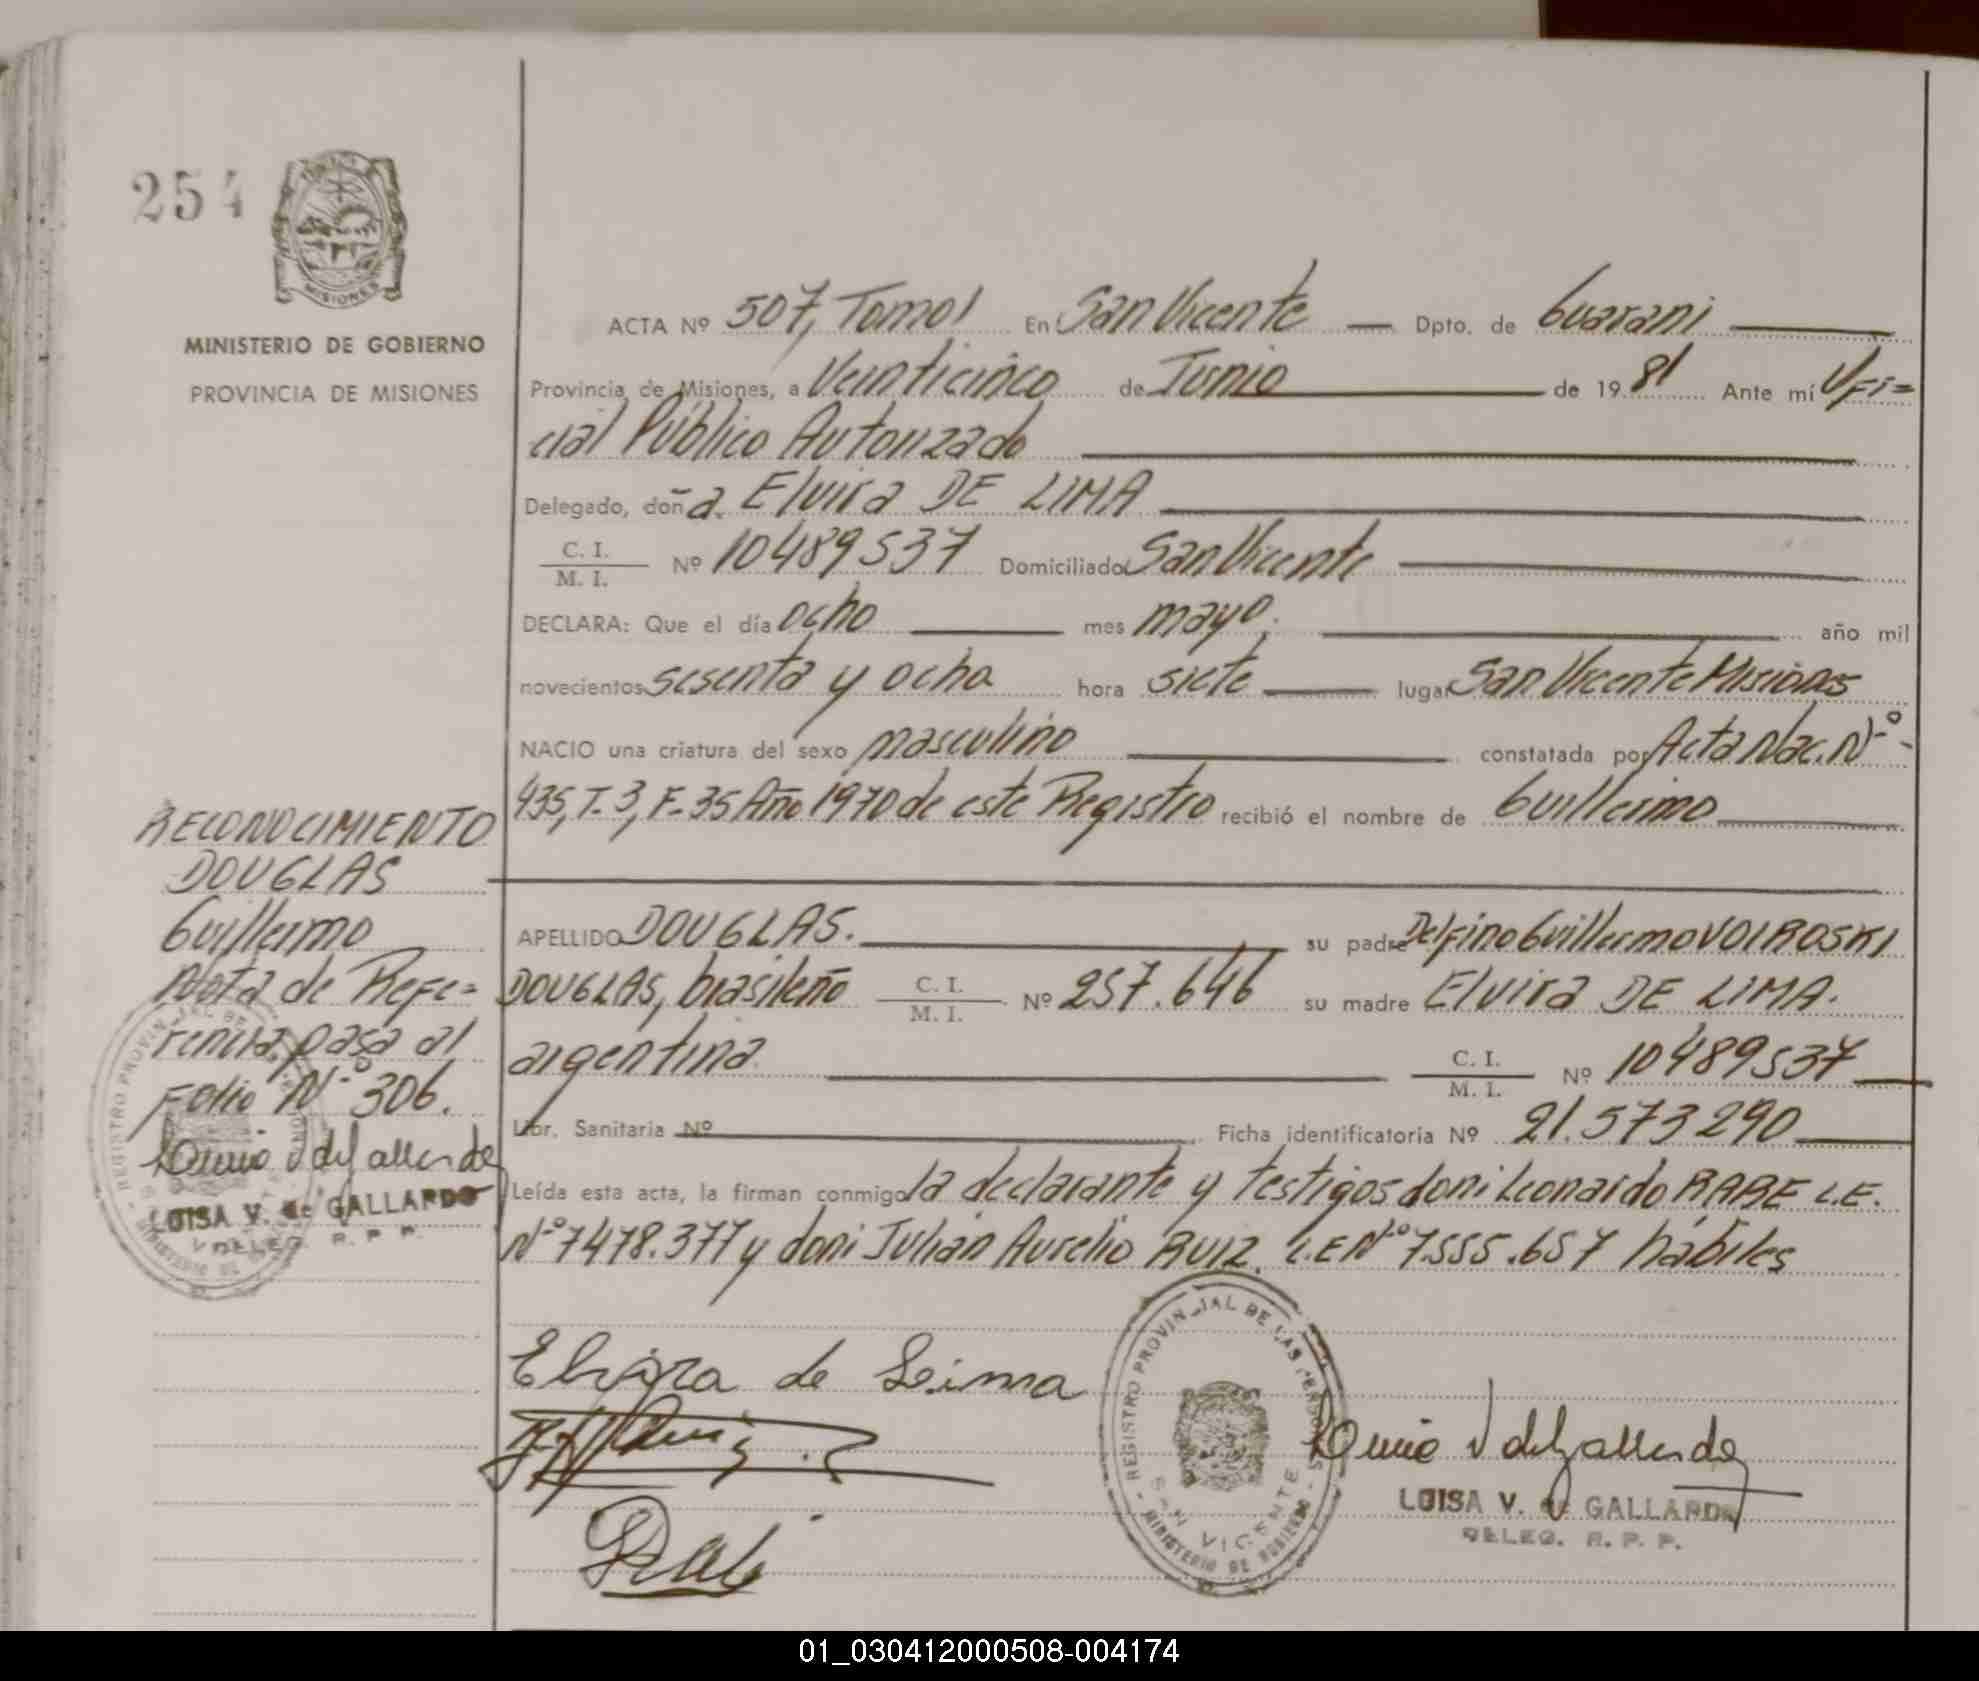 254
MISIONES
MINISTERIO DE GOBIERNO
PROVINCIA DE MISIONES
ACTA Nº 507, Tomo I En San Vicente Dpto. de Guarani
Provincia de Misiones, a Veinticinco de Junio de 19 81 Ante mí Ofi=
cial Público Autorizado
Delegado, doña. Elvira DE LIMA
C. I. / M. I. Nº 10489537 Domiciliado San Vicente
DECLARA: Que el día ocho mes mayo. año mil
novecientos sesenta y ocho hora siete lugar San Vicente Misiones
NACIO una criatura del sexo masculino constatada por Acta Nac. Nº-
435, T. 3, F. 35 Año 1970 de este Registro recibió el nombre de Guillermo
APELLIDO DOUGLAS. su padre Delfino Guillermo VOIROSKI
DOUGLAS, brasileño C. I. / M. I. Nº 257.646 su madre Elvira DE LIMA.
argentina. C. I. / M. I. Nº 10489537
Libr. Sanitaria Nº Ficha identificatoria Nº 21.573290
Leída esta acta, la firman conmigo la declarante y testigos don: Leonardo RABE L.E.
Nº 7478.377 y don: Julián Aurelio RUIZ. L.E Nº 7.555.657 hábiles
RECONOCIMIENTO
DOUGLAS
Guillermo
Nota de Refe=
rencia pasa al
Folio Nº 306.
LUISA V. de GALLARDO
DELEG. R. P. P.
Elvira de Leima
REGISTRO PROVINCIAL DE LAS PERSONAS
SAN VICENTE
MINISTERIO DE GOBIERNO
LUISA V. de GALLARDO
DELEG. R. P. P.
01_030412000508-004174